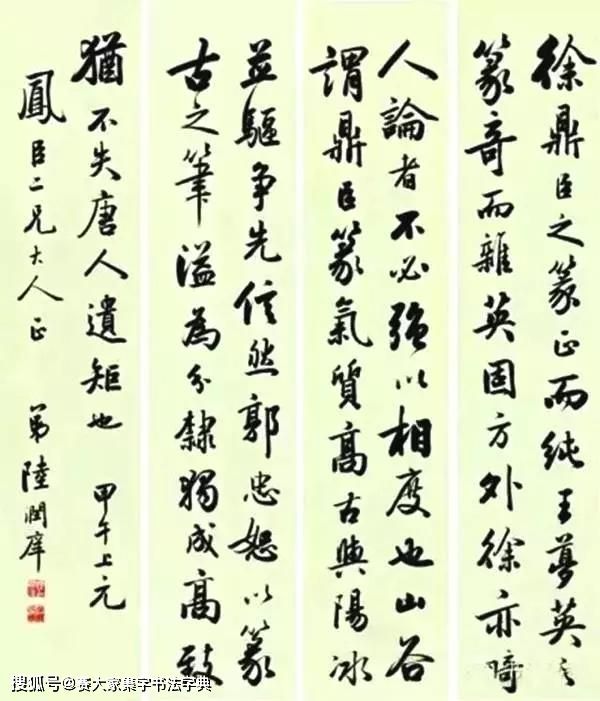 徐鼎臣之篆正而纯王夢英之
篆奇而雜英固方外徐亦畸
人論者不必强以相度也山谷
謂鼎臣篆氣質高古與陽冰
並驅争先信然郭忠恕以篆
古之筆溢為分隸獨成高致
猶不失唐人遺矩也 甲午上元
鳳臣二兄大人正 弟陸潤庠
搜狐号@赛大家集字书法字典